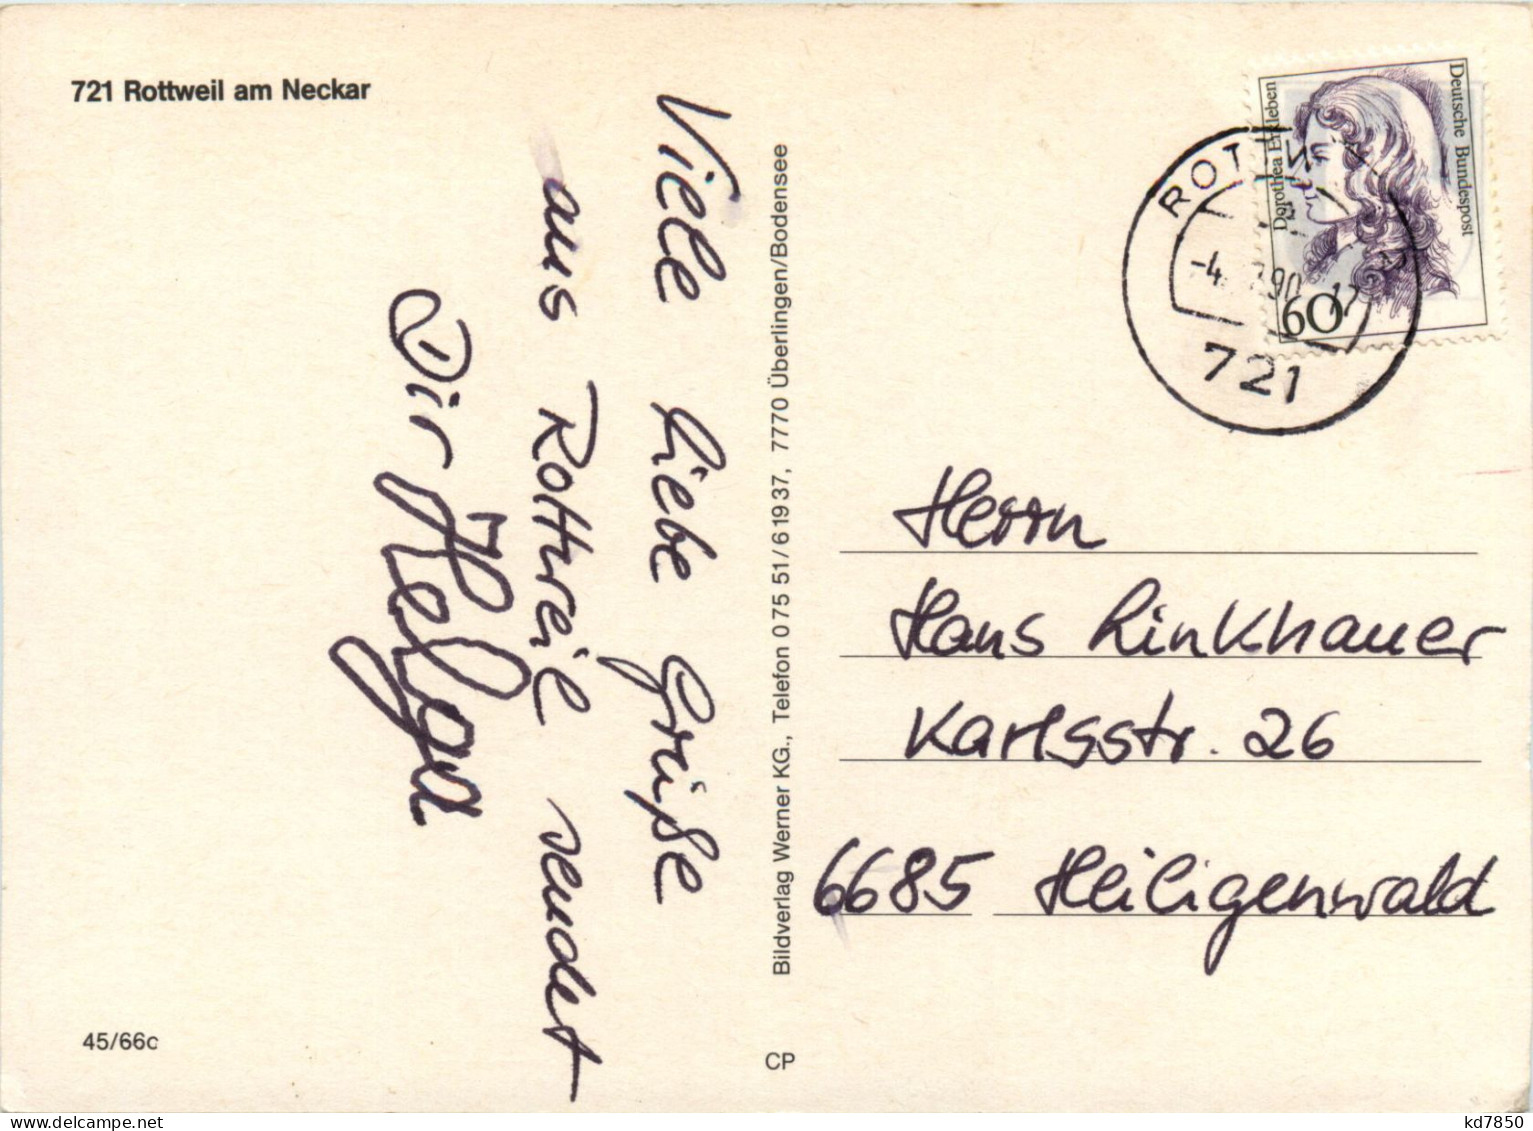 721 Rottweil am Neckar
Viele liebe Grüße
aus Rottweil sendet
Dir Helga
45/66c
Bildverlag Werner KG., Telefon 0 75 51/6 19 37, 7770 Überlingen/Bodensee
CP
Deutsche Bundespost
Dorothea Erxleben
60
721
Herrn
Hans Linkhauer
Karlsstr. 26
6685 Heiligenwald
kd7850